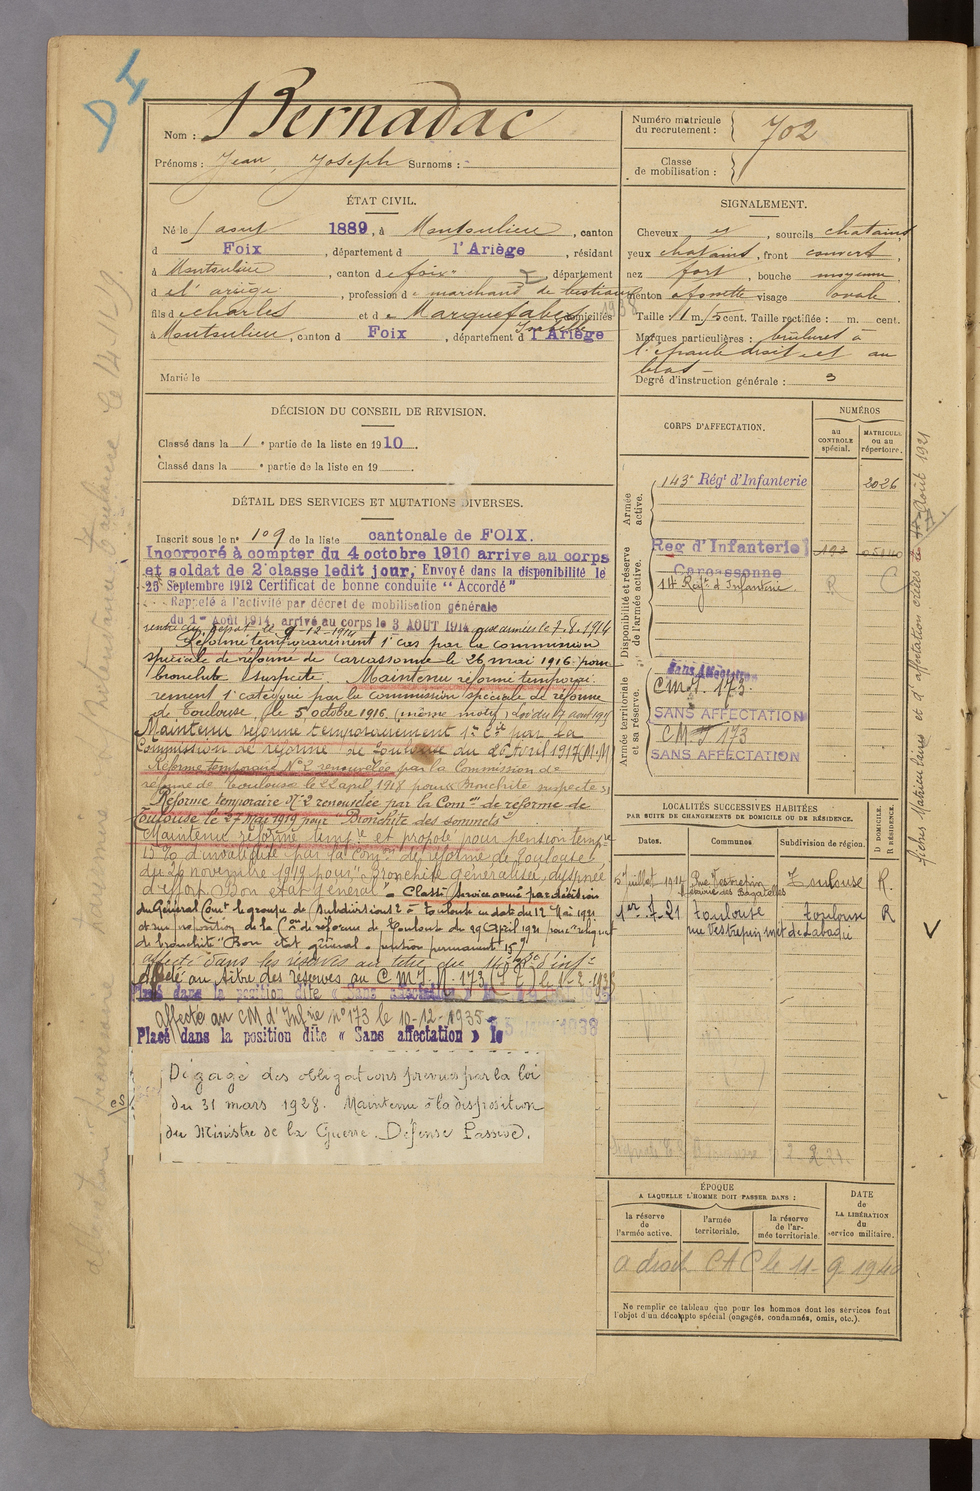 D 4
Nom : Bernadac
Prénoms : Jean, Joseph Surnoms :
Numéro matricule
du recrutement : 702
Classe
de mobilisation :
ÉTAT CIVIL.
Né le 5 aout 1889, à Montoulieu, canton
d Foix, département d l'Ariège, résidant
à Montoulieu, canton de foix, département
d el' ariège, profession de marchand de bestiaux
fils de charles et de Marquefabes Josephine domiciliés
à Montoulieu, canton d Foix, département d l'Ariège
Marié le
SIGNALEMENT.
Cheveux et, sourcils chatains
yeux chatains, front couvert
nez fort, bouche moyenne
menton afossette visage ovale
Taille : 1 m. cent. Taille rectifiée : m. cent.
Marques particulières : brûlures à
l'épaule droit et au
bras
Degré d'instruction générale : 3
DÉCISION DU CONSEIL DE REVISION.
Classé dans la 1e partie de la liste en 1910.
Classé dans la e partie de la liste en 19
DÉTAIL DES SERVICES ET MUTATIONS DIVERSES.
Inscrit sous le n° 109 de la liste cantonale de FOIX.
Incorporé à compter du 4 octobre 1910 arrive au corps
et soldat de 2e classe ledit jour, Envoyé dans la disponibilité le
25 Septembre 1912 Certificat de bonne conduite "Accordé"
Rappelé à l'activité par décret de mobilisation générale
du 1er Août 1914, arrivé au corps le 3 AOUT 1914 aux armées le 7-8-1914
rentré au dépôt le 9-12-1914
Réformé temporairement 1e cas par la commission
spéciale de réforme de Carcassonne le 26 mai 1916 pour
"bronchite suspecte". Maintenu réformé temporai-
rement 1e catégorie par la commission spéciale de réforme
de Toulouse, le 5 octobre 1916 (même motif) Loi du 17 aout 1915
Maintenu réformé temporairement 1e Cie par la
Commission de réforme de Toulouse du 26 Avril 1917 M.M
Réforme temporaire N° 2 renouvelée par la Commission de
réforme de Toulouse le 22 april 1918 pour Bronchite suspecte
Réforme temporaire N° 2 renouvelée par la Comon de réforme de
Toulouse le 27 Mai 1919 pour "Bronchite des sommets"
Maintenu réformé tempre et proposé pour pension tempre
15 % d'invalidité par la Comon de réforme de Toulouse
du 20 novembre 1919 pour "Bronchite généralisée, dyspnée
d'effort. Bon état général". Classé service armé par décision
du Général Comt le groupe de Subdivisions à Toulouse en date du 12 Mai 1921
et sur proposition de la Con de réforme de Toulouse du 29 April 1921 pour "reliquat
de bronchite" Bon etat général - pension permanente 15 %
affecté dans les réserves au titre du 14e Rt d'inf
affecté au titre des réserves au C.M.I. n. 173
Placé dans la position dite « Sans affectation »
affecté au CM d'Infrie n° 173 le 10-12-1935
Placé dans la position dite « Sans affectation » le
Dégagé des obligations prévues par la loi
du 31 mars 1928. Maintenu à la disposition
du Ministre de la Guerre. Défense Passive.
CORPS D'AFFECTATION.
NUMÉROS
au
CONTROLE
spécial.
MATRICULE
ou au
répertoire.
Armée
active.
143e Régt d'Infanterie 2026
Disponibilité et réserve
de l'armée active.
Reg d'Infanterie
Carcassonne
14 Regt d'Infanterie R C
Armée territoriale
et sa réserve.
Sans Affectation
CM I. 173.
SANS AFFECTATION
CM I 173
SANS AFFECTATION
LOCALITÉS SUCCESSIVES HABITÉES
PAR SUITE DE CHANGEMENTS DE DOMICILE OU DE RÉSIDENCE.
Dates. Communes Subdivision de région. D DOMICILE. R RÉSIDENCE.
juillet 1914 Rue Vestrepin Toulouse R.
1er 7-21 Toulouse Toulouse R
rue Vestrepin
ÉPOQUE
A LAQUELLE L'HOMME DOIT PASSER DANS :
la réserve
de
l'armée active.
l'armée
territoriale.
la réserve
de l'ar-
mée territoriale.
DATE
de
LA LIBÉRATION
du
service militaire.
a droit CAC le 11-9-1940
Ne remplir ce tableau que pour les hommes dont les services font
l'objet d'un décompte spécial (engagés, condamnés, omis, etc.).
fiches Matriculaires et d'affectation créées Août 1921